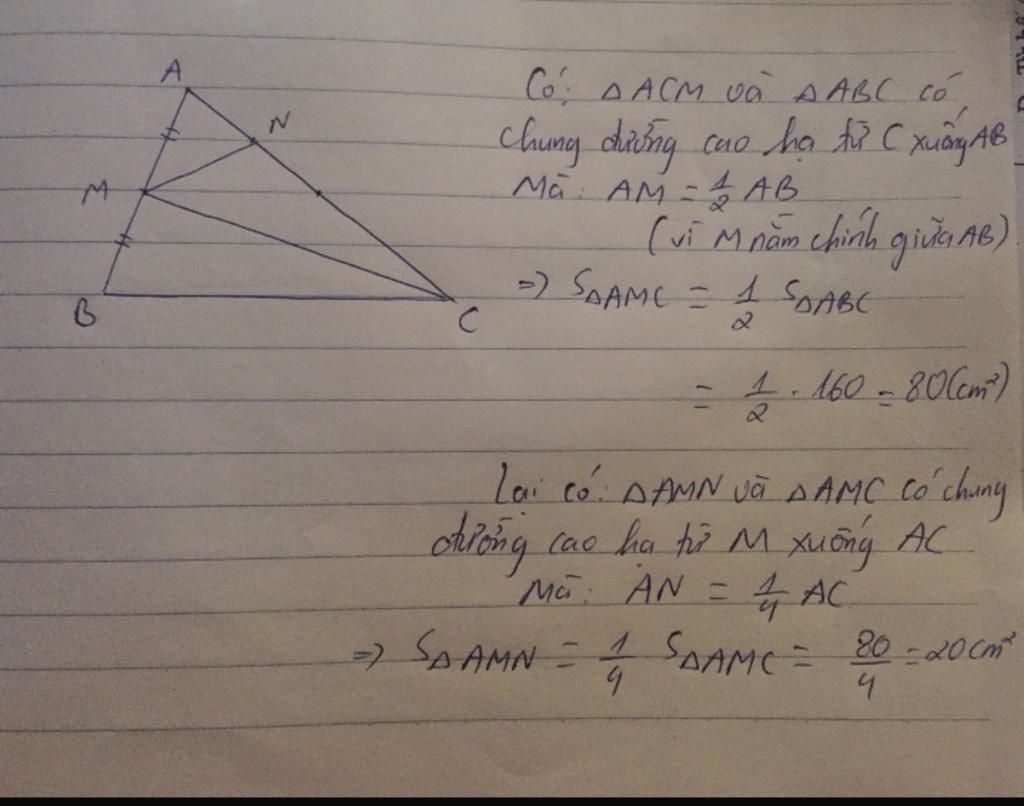 A
N
M
B
C
Có: ΔACM và ΔABC có
chung đường cao hạ từ C xuống AB
Mà: AM = 1/2 AB
(vì M nằm chính giữa AB)
=> SΔAMC = 1/2 SΔABC
= 1/2 . 160 = 80(cm²)
Lại có: ΔAMN và ΔAMC có chung
đường cao hạ từ M xuống AC
Mà: AN = 1/4 AC
=> SΔAMN = 1/4 SΔAMC = 80/4 = 20cm²